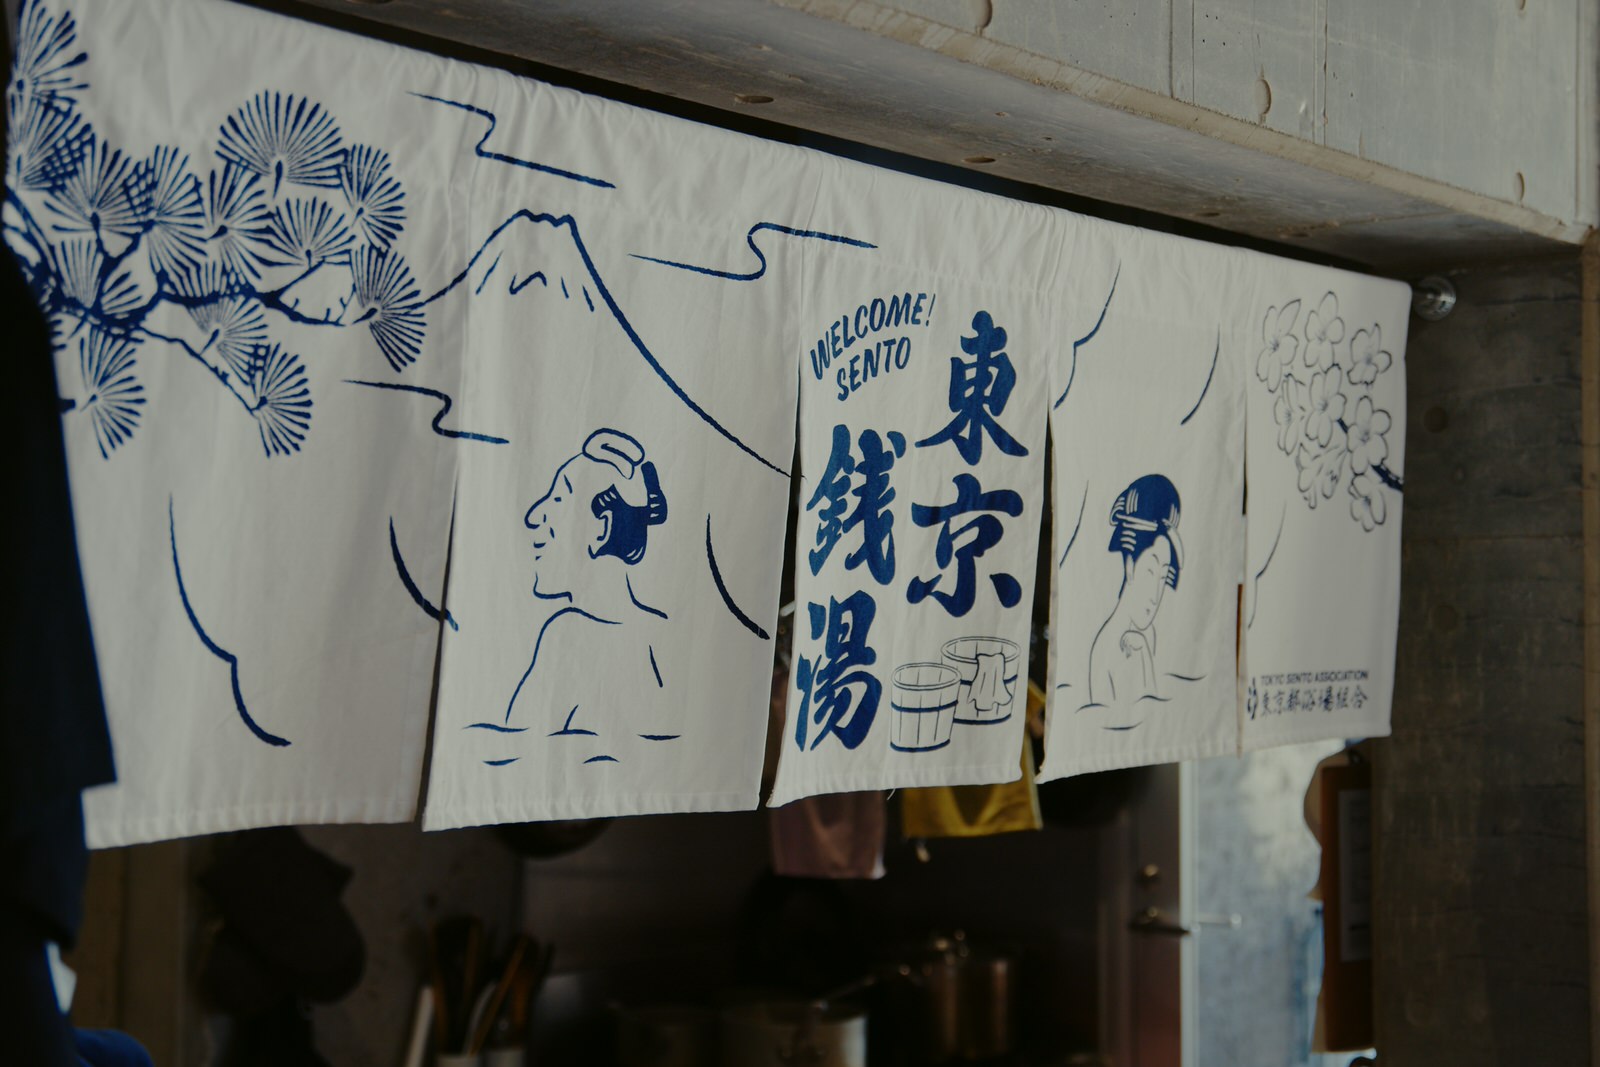 WELCOME!
SENTO
東京
銭湯
TOKYO SENTO ASSOCIATION
東京都浴場組合